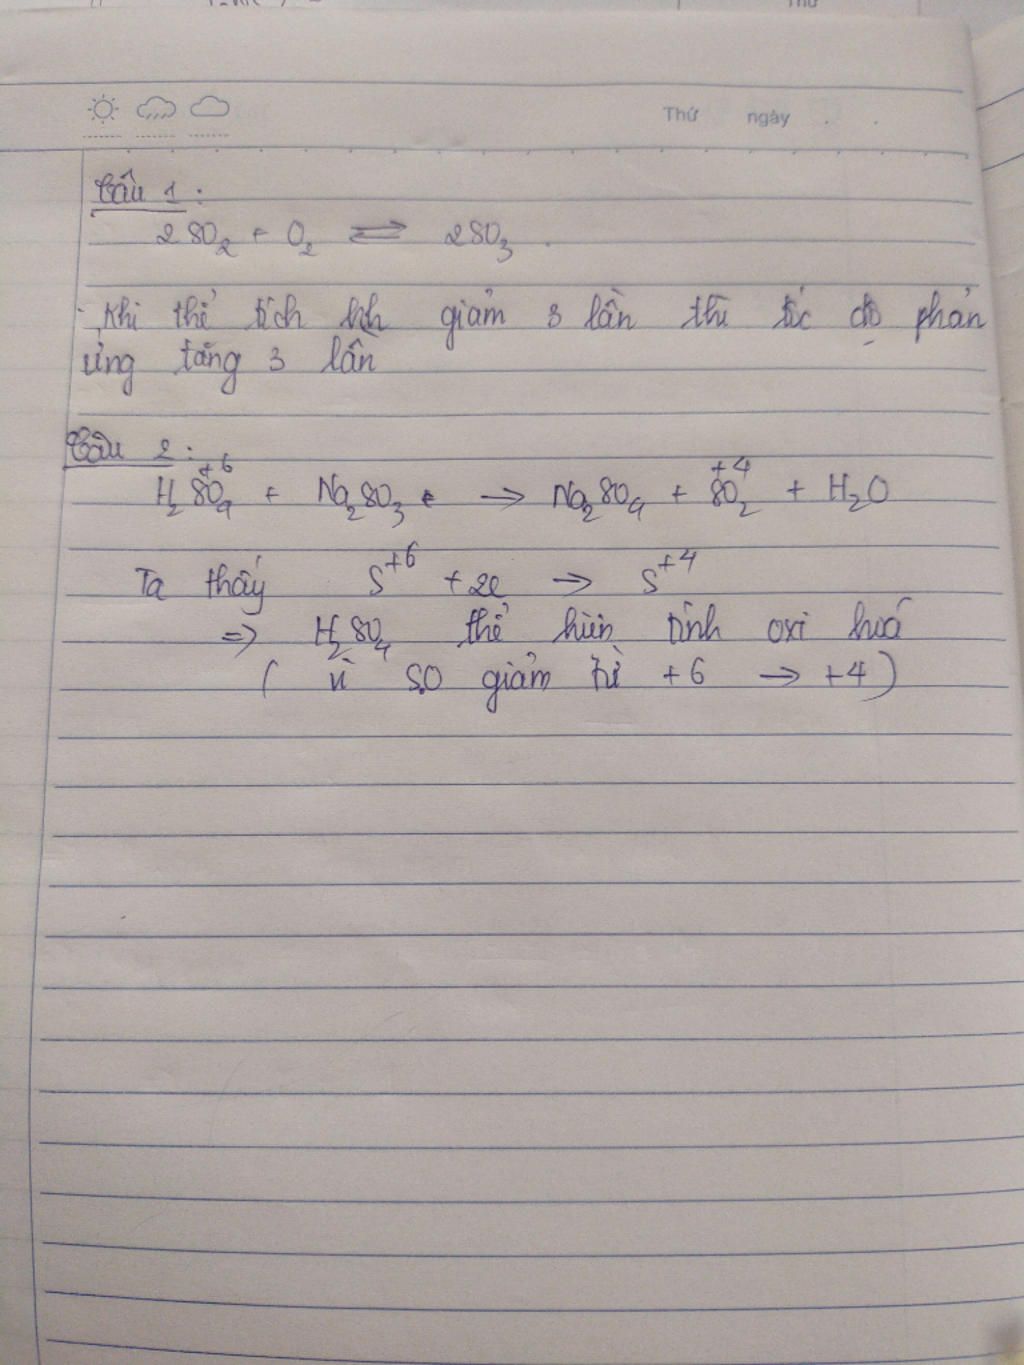 Thứ ngày
Câu 1:
2SO₂ + O₂ ⇌ 2SO₃.
- Khi thể tích bình giảm 3 lần thì tốc độ phản
ứng tăng 3 lần
Câu 2:
H₂S⁺⁶O₄ + Na₂SO₃ → Na₂SO₄ + S⁺⁴O₂ + H₂O
Ta thấy S⁺⁶ + 2e → S⁺⁴
=> H₂SO₄ thể hiện tính oxi hoá
( vì S.O giảm từ +6 → +4)